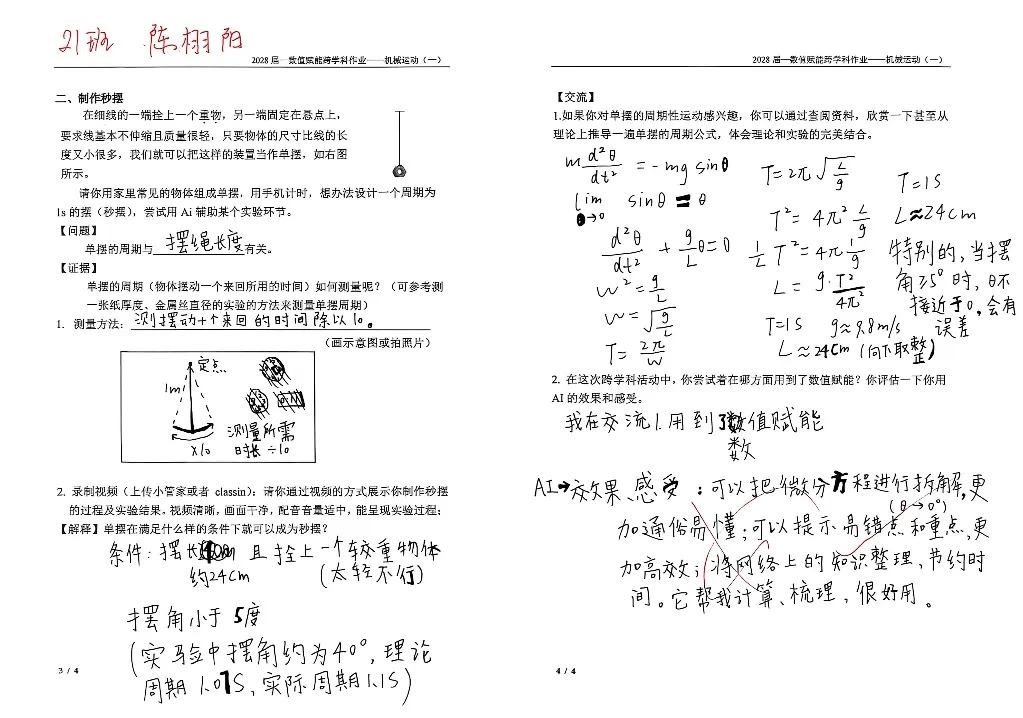 21班 陈栩阳
2028届—数值赋能跨学科作业——机械运动（一）
二、制作秒摆
在细线的一端拴上一个重物，另一端固定在悬点上，
要求线基本不伸缩且质量很轻，只要物体的尺寸比线的长
度又小很多，我们就可以把这样的装置当作单摆，如右图
所示。
请你用家里常见的物体组成单摆，用手机计时，想办法设计一个周期为
1s 的摆（秒摆），尝试用 Ai 辅助某个实验环节。
【问题】
单摆的周期与 摆绳长度 有关。
【证据】
单摆的周期（物体摆动一个来回所用的时间）如何测量呢？（可参考测
一张纸厚度、金属丝直径的实验的方法来测量单摆周期）
1. 测量方法：测摆动十个来回的时间除以10。
（画示意图或拍照片）
定点
1m
测量所需
×10 时长÷10
2. 录制视频（上传小管家或者 classin）：请你通过视频的方式展示你制作秒摆
的过程及实验结果。视频清晰，画面干净，配音音量适中，能呈现实验过程；
【解释】单摆在满足什么样的条件下就可以成为秒摆？
条件：摆长 且拴上一个较重物体
约24cm （太轻不行）
摆角小于5度
（实验中摆角约为40°，理论
周期1.01S，实际周期1.1S）
3 / 4
2028届—数值赋能跨学科作业——机械运动（一）
【交流】
1.如果你对单摆的周期性运动感兴趣，你可以通过查阅资料，欣赏一下甚至从
理论上推导一遍单摆的周期公式，体会理论和实验的完美结合。
m d²θ/dt² = -mg sinθ
lim θ→0 sinθ = θ
d²θ/dt² + g/L θ=0
w² = g/L
w = √g/L
T = 2π/w
T=2π√L/g
T²= 4π² L/g
1/L T²=4π 1/g
L = g·T²/4π²
T=1S g≈9.8m/s
L≈24cm（向下取整）
T=1S
L≈24cm
特别的，当摆
角≥5°时，θ不
接近于0，会有
误差
2. 在这次跨学科活动中，你尝试着在哪方面用到了数值赋能？你评估一下你用
AI 的效果和感受。
我在交流1.用到了数值赋能
数
AI→效果、感受：可以把微分方程进行拆解，更
(θ→0°)
加通俗易懂；可以提示易错点和重点，更
加高效；将网络上的知识整理，节约时
间。它帮我计算、梳理，很好用。
4 / 4